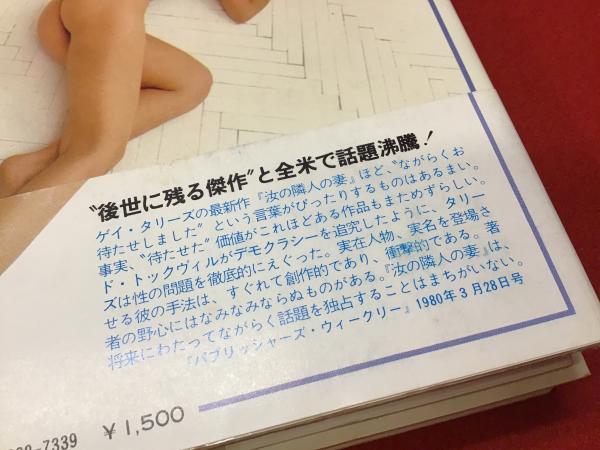 〝後世に残る傑作〟と全米で話題沸騰！
ゲイ・タリーズの最新作『汝の隣人の妻』ほど、〝ながらくお
待たせしました〟という言葉がぴったりするものはあるまい。
事実、〝待たせた〟価値がこれほどある作品もまためずらしい。
ド・トックヴィルがデモクラシーを追究したように、タリー
ズは性の問題を徹底的にえぐった。実在人物、実名を登場さ
せる彼の手法は、すぐれて創作的であり、衝撃的である。著
者の野心にはなみなみならぬものがある。『汝の隣人の妻』は、
将来にわたってながらく話題を独占することはまちがいない。
『パブリッシャーズ・ウィークリー』1980年3月28日号
¥1,500
-7339